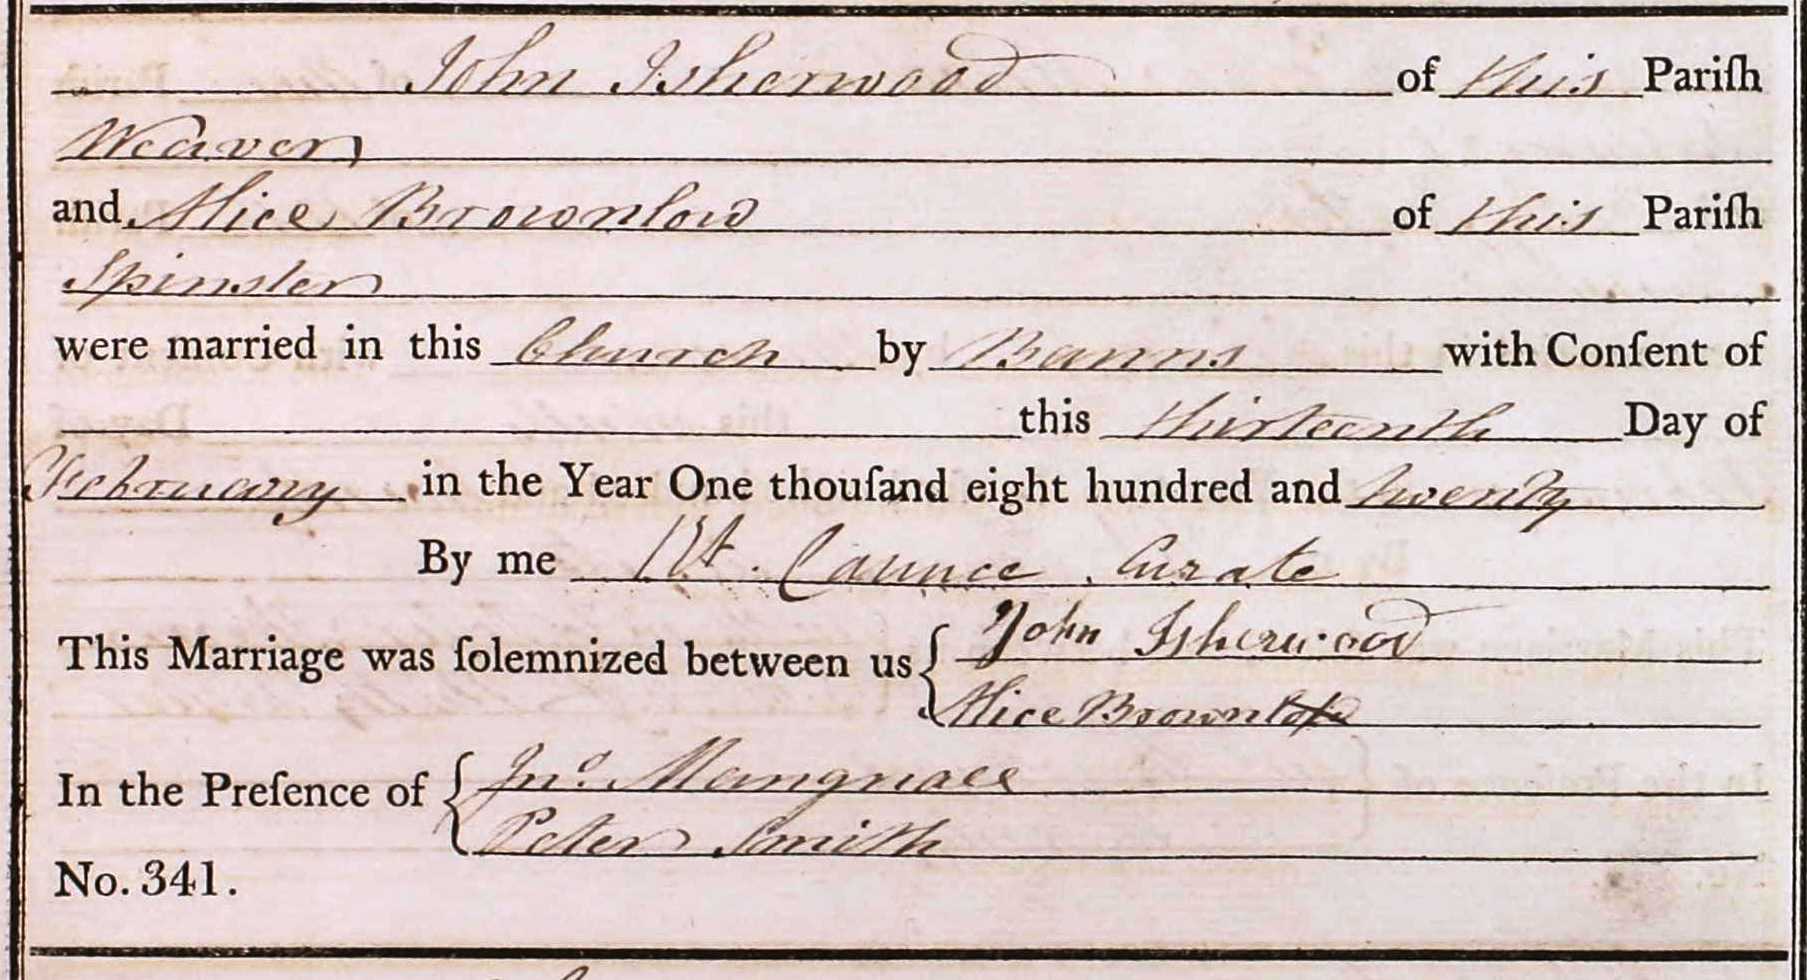 John Isherwood of this Pariſh
Weaver
and Alice Brownlow of this Pariſh
Spinster
were married in this Church by Banns with Conſent of
this thirteenth Day of
February in the Year One thouſand eight hundred and twenty
By me Curate
This Marriage was ſolemnized between us { John Isherwood
Alice Brownlow
In the Preſence of { Jno. Mangnall
Peter Smith
No. 341.